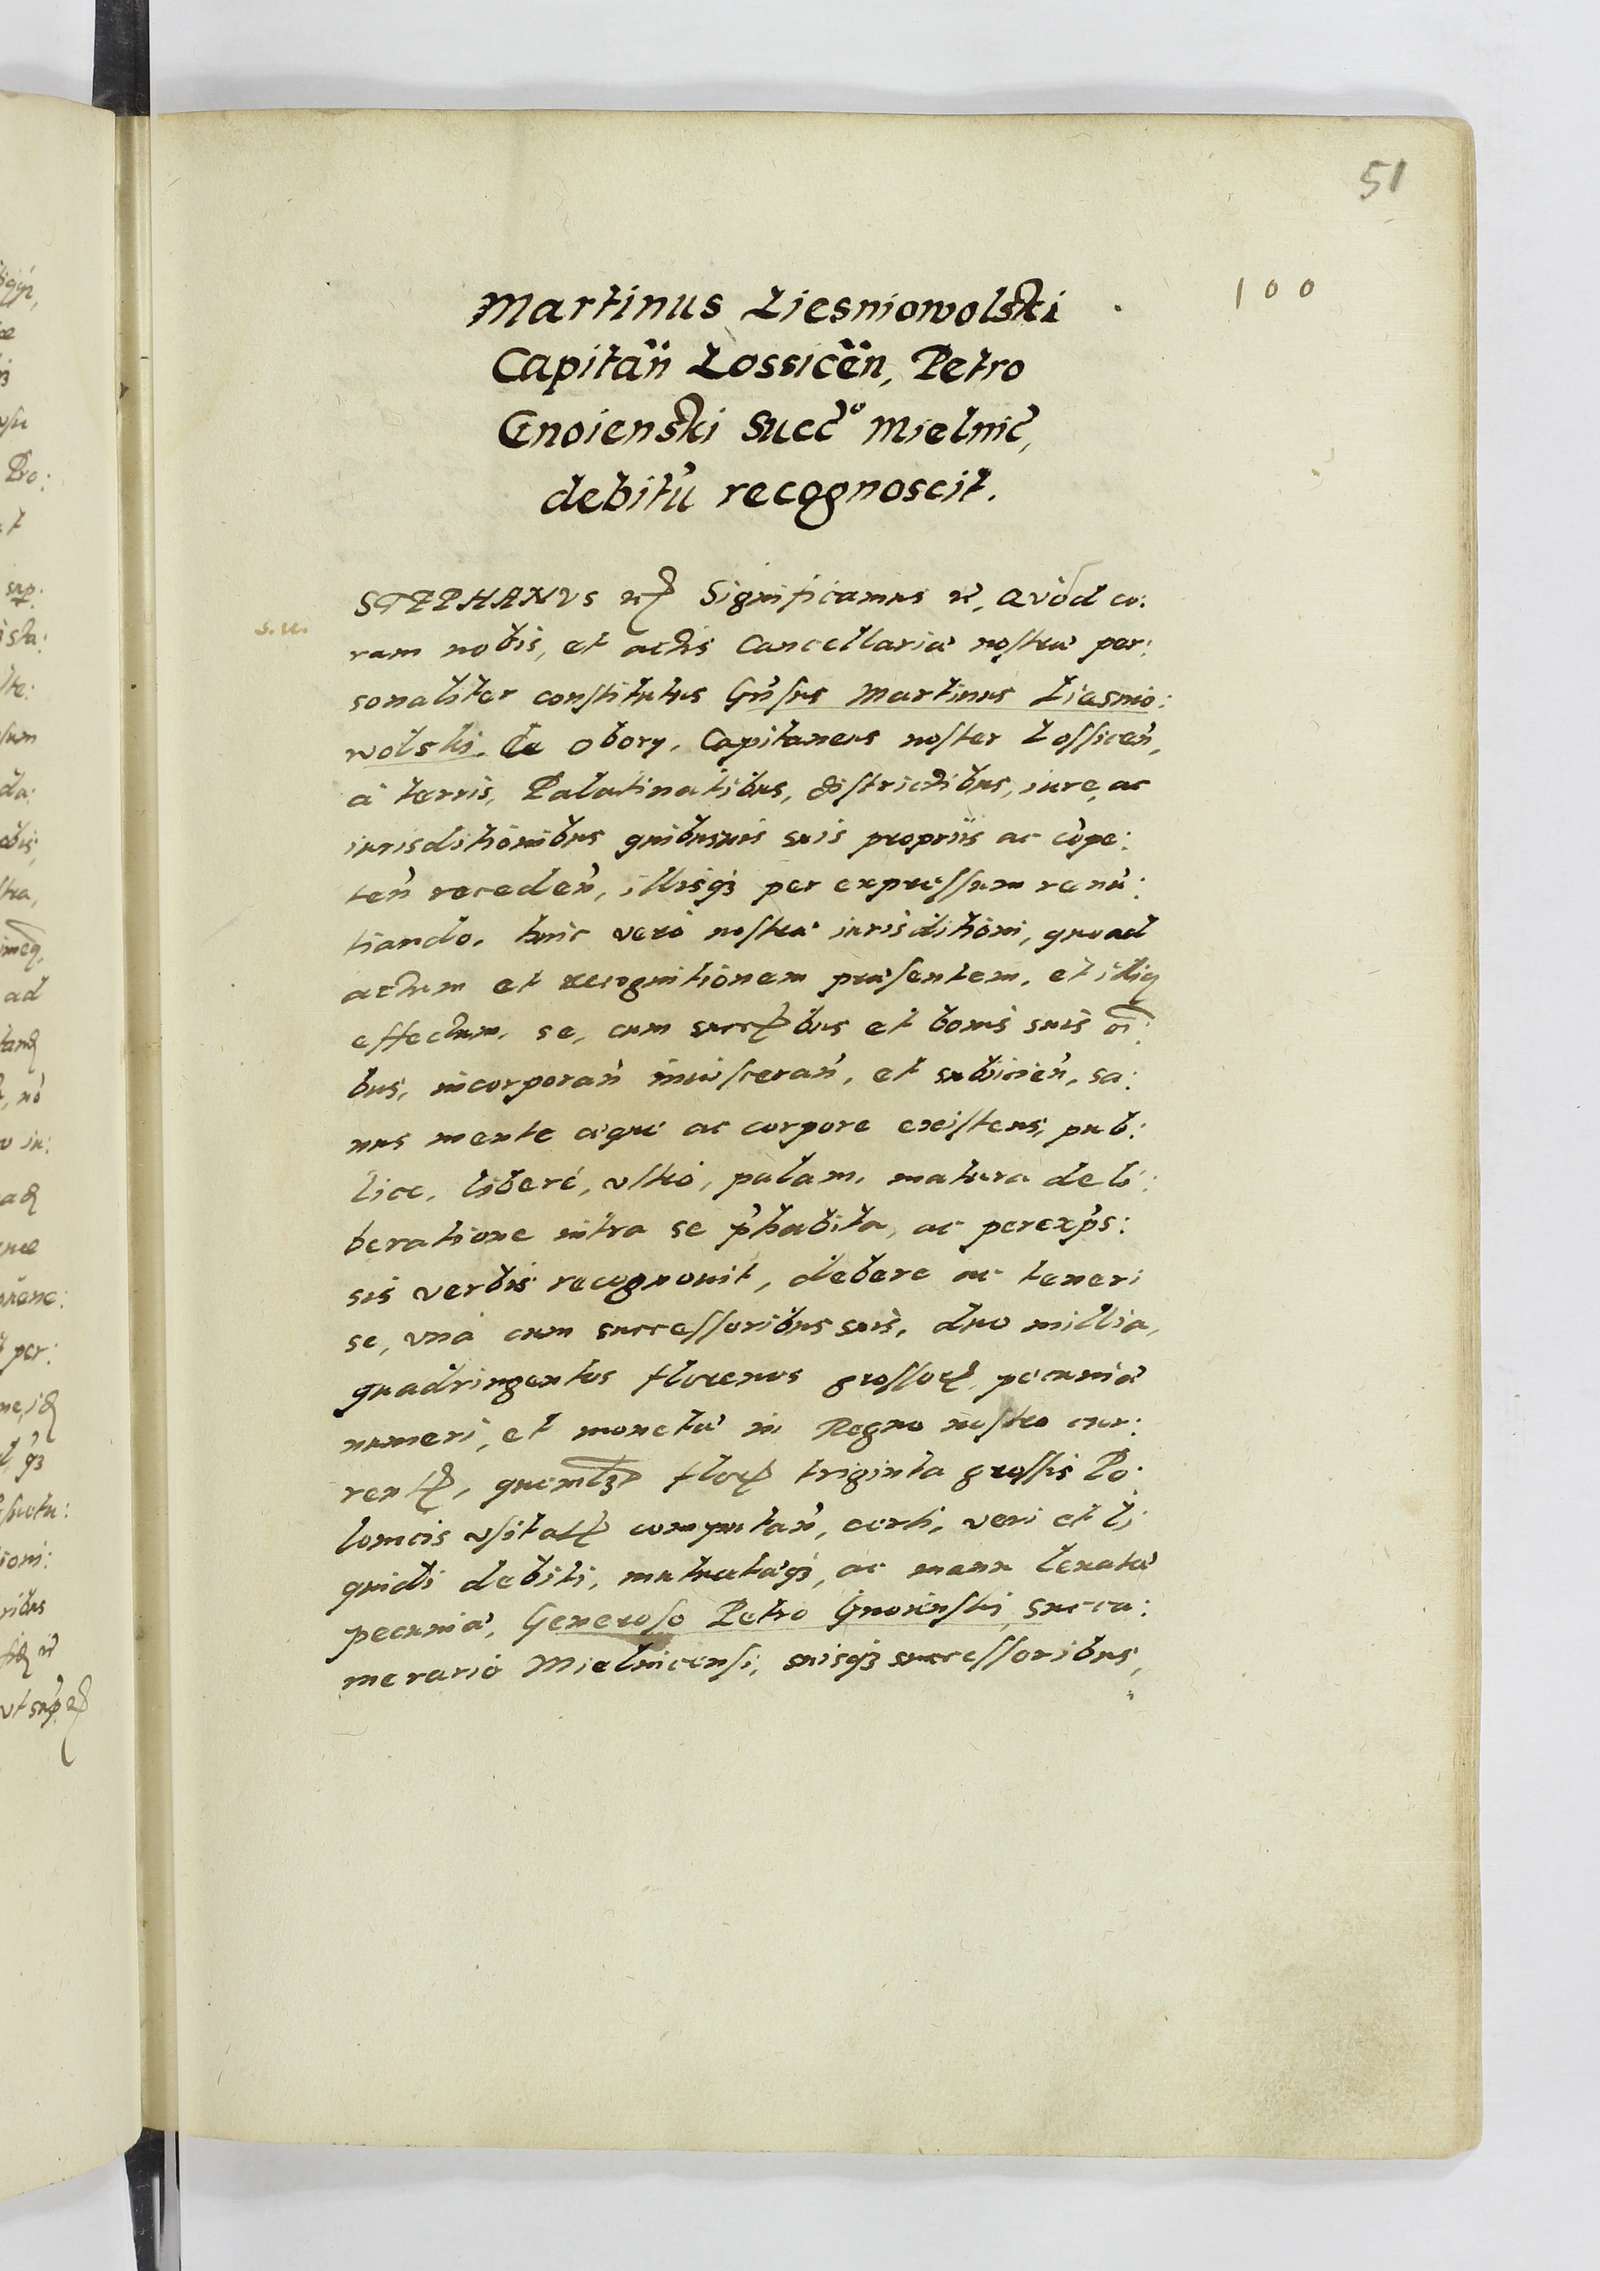 51
100
Martinus Liesniowolski
Capitan̈ Lossicen̈, Petro
Gnoienski Succ͛o Mielnic̓,
debitu̓ recognoscit.
STEPHANVS etc̓ Significamus etc̓, Quòd co:
ram nobis, et actis Cancellariæ nostræ per:
sonaliter constitutus Gn̓sus Martinus Liesnio:
wolski de Obory, Capitaneus noster Lossicen̓,
à terris, Palatinatibus, districtibus, iure, ac
iurisditionibus quibusuis suis propriis ac co̓pe:
ten̓ receden̓, illisqꝫ per expressum renu̓:
tiando, huic verò nostræ iurisditioni, quoad
actum et recognitionem præsentem, et illiꝰ
effectum, se, cum succꝭbus et bonis suis oı̃:
bus, incorporan̓ inuisceran̓, et subiicien̓, sa:
nus mente æquè ac corpore existens, pub:
licè, liberè, vltrò, palam, matura deli:
beratione intra se p̓habita, ac perexp̓s:
sis verbis recognouit, debere ac teneri
se, vnà cum successoribus suis, duo millia,
quadringentos florenos grossoꝝ, pecuniæ
numeri, et monetæ in Regno nostro cur:
rentꝭ, quemlꝫ floꝝ triginta grossis Po:
lonicis vsitatꝭ computan̓, certi, veri et li:
quidi debiti, mutuatæqꝫ, ac manu leuatæ
pecuniæ, Generoso Petro Gnoienski, Succa:
merario Mielnicensi, suisqꝫ successoribus,